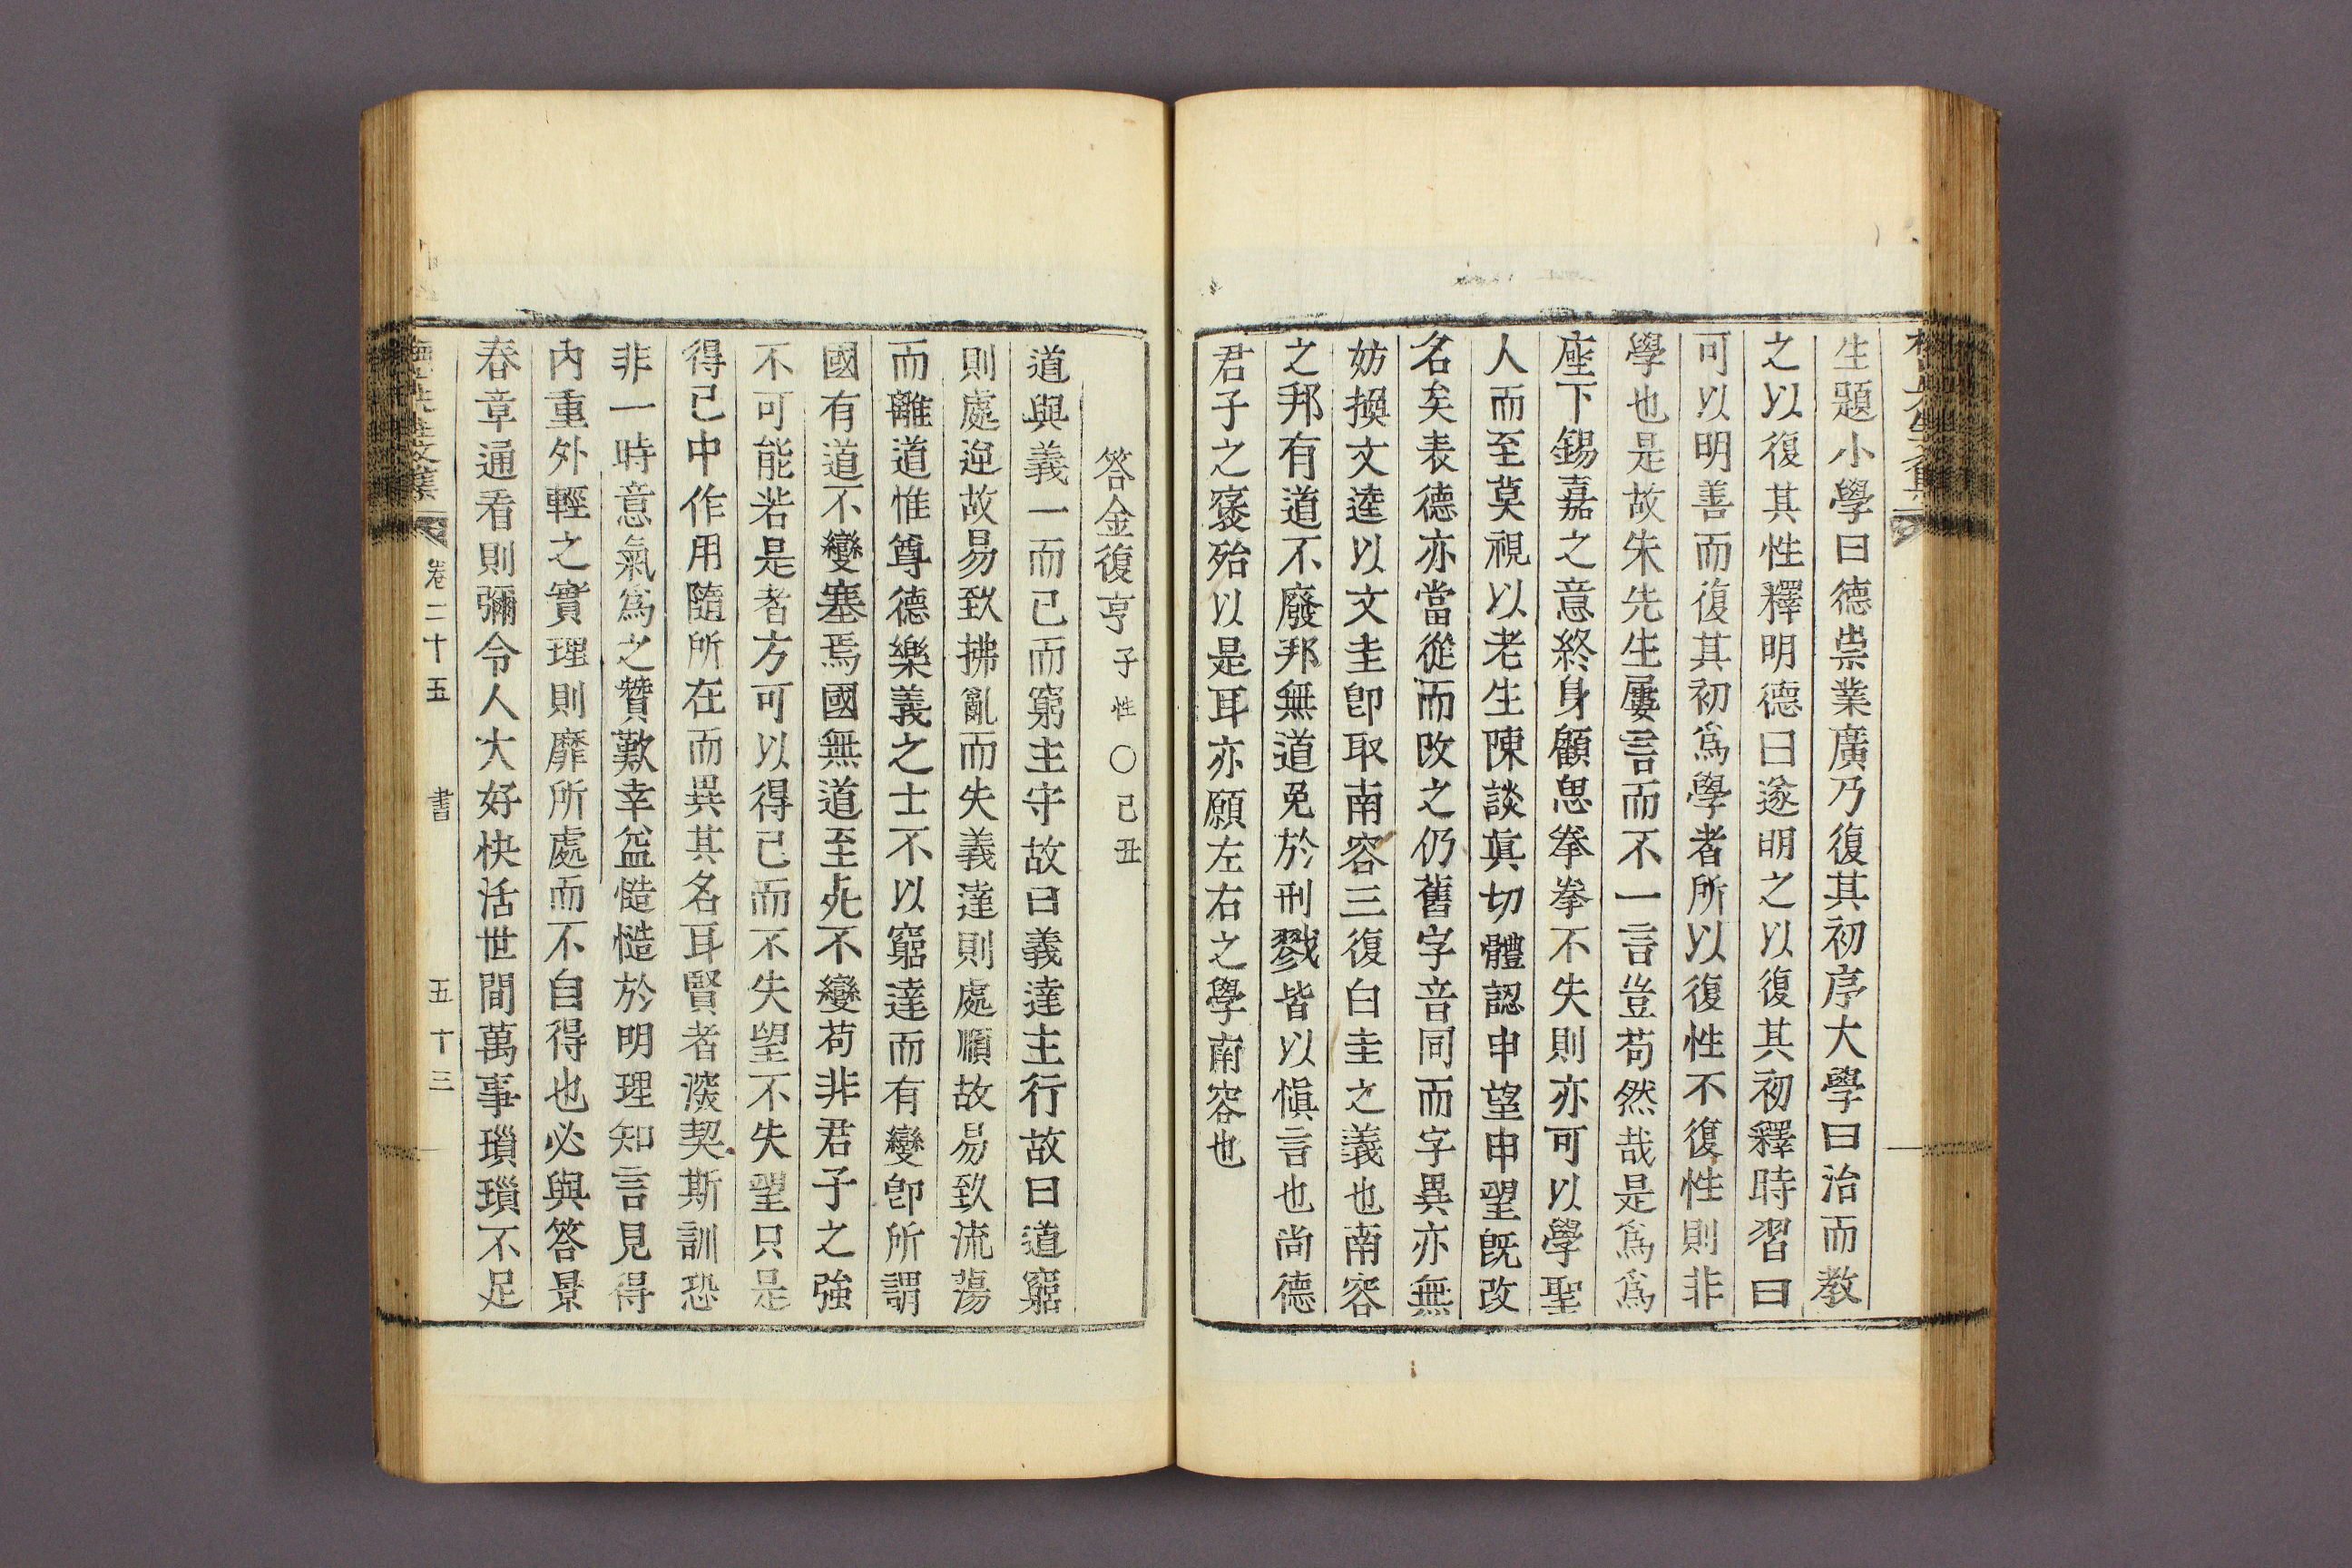 生題小學曰德崇業廣乃復其初序大學曰治而教
之以復其性釋明德曰遂明之以復其初釋時習曰
可以明善而復其初爲學者所以復性不復性則非
學也是故朱先生屢言而不一言豈苟然哉是爲爲
座下錫嘉之意終身顧思拳拳不失則亦可以學聖
人而至莫視以老生陳談眞切體認申望申望旣改
名矣表德亦當從而改之仍舊字音同而字異亦無
妨換文逵以文圭卽取南容三復白圭之義也南容
之邦有道不廢邦無道免於刑戮皆以愼言也尙德
君子之褒殆以是耳亦願左右之學南容也
答金復亨 子性○己丑
道與義一而已而窮主守故曰義達主行故曰道窮
則處逆故易致拂亂而失義達則處順故易致流蕩
而離道惟尊德樂義之士不以窮達而有變卽所謂
國有道不變塞焉國無道至死不變苟非君子之強
不可能若是者方可以得己而不失望不失望只是
得己中作用隨所在而異其名耳賢者深契斯訓恐
非一時意氣爲之贊歎幸益慥慥於明理知言見得
內重外輕之實理則靡所處而不自得也必與答景
春章通看則彌令人大好快活世間萬事瑣瑣不足
卷二十五 書 五十三